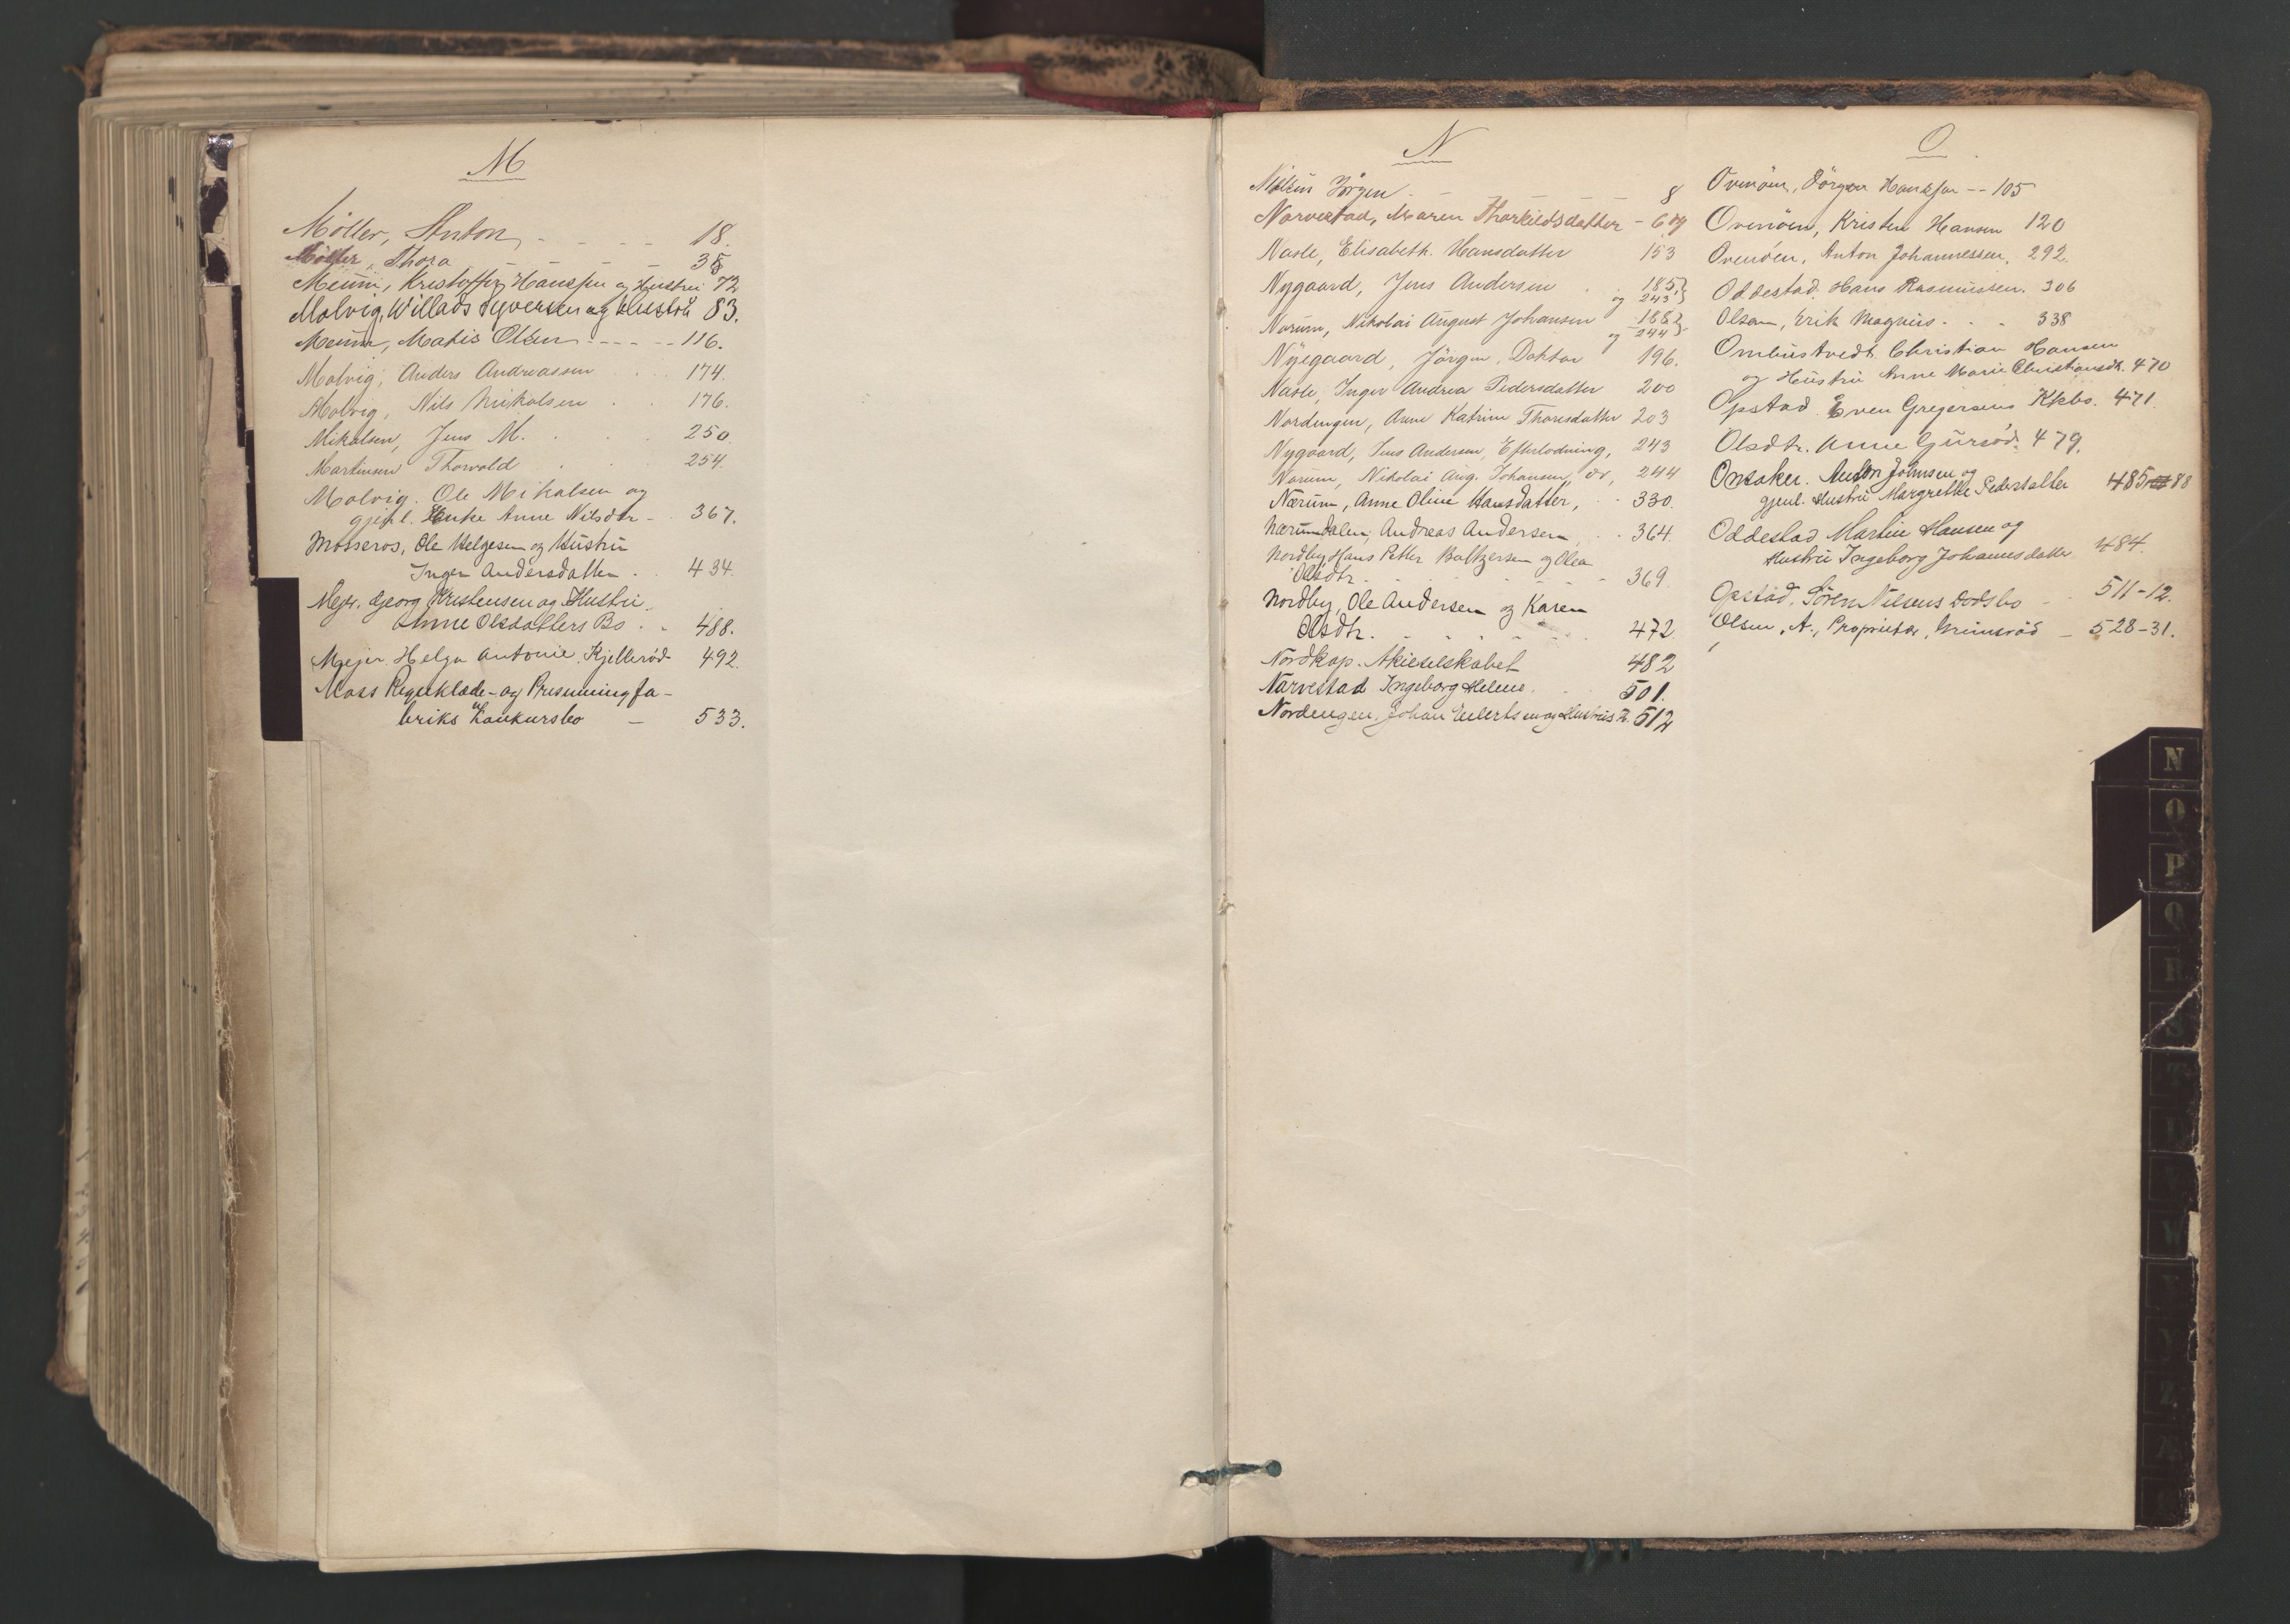 M
Möller, Anton - - - - 18.
Möller, Thora - - - 35
Meum, Kristoffer Hansen og Hustru 72
Molvig, Willads Syversen og Hustru 83.
Meum, Matis Olsen - - - - - 116.
Molvig, Anders Andreassen . . . 174.
Molvig, Nils Mikalsen . . 176.
Mikalsen, Jens M. . . . 250.
Martinsen Thorvald . . 254.
Molvig. Ole Mikalsen og
gjenl. Enke Anne Nilsdtr - 367.
Mosseros, Ole Helgesen og Hustru
Inger Andersdatter . 434.
Mejer. Georg Kristensen og Hustru
Anne Olsdatters Bo . . 488.
Mejer. Helga Antonie, Kjellerød 492
Moss Regnklæde- og Presenningfa-
briks Konkursbo - 533.
N
Nielsen Jörgen - - - 8
Narvestad, Maren Thorkildsdatter - 619
Nasle, Elisabeth Hansdatter 153
Nygaard, Jens Andersen . . 185
og 243
Norum, Nikolai August Johansen 188
og 244
Nyegaard, Jörgen, Doktor 196.
Nasle, Inger Andrea Pedersdatter 200
Nordengen, Anne Katrine Thoresdatter 203
Nygaard, Jens Andersen, Efterlodning, 243
Norum, Nikolai Aug. Johansen, do, 244
Nærum, Anne Oline Hansdatter, . . 330.
Nærumdalen, Andreas Andersen . . 364.
Nordby, Hans Petter Baltzersen og Olea
Olsdtr. - - - - - - 369.
Nordby, Ole Andersen og Karen
Olsdtr. - - - - - 472.
Nordkap. Akieselskabet 482
Narvestad Ingeborg Helene. . 501.
Nordengen, Johan Eilertsen og Hustrus 512
O
Ovenöen, Jörgen Hansen -- 105
Ovenöen, Kristen Hansen 120
Ovenöen, Anton Johannessen, 292.
Oddestad, Hans Rasmussen. 306
Olsen, Erik Magnus . . . 338
Ombustvedt Christian Hansen
og Hustru Anne Marie Christiansdt. 470
Opstad Even Gregersens Kkbo. 471.
Olsdtr. Anne Gursød. 479.
Onsaker. Anton Johnsen og
gjenl. Hustru Margrethe Pedersdatter 485 88
Oddestad Martin Hansen og
Hustru Ingeborg Johannesdatter 484.
Opstad, Sören Nilsens Dødsbo - . 511-12.
Olsen, A., Proprietær, Grimsröd - 528-31.
N
O
P
Q
R
S
T
W
Z